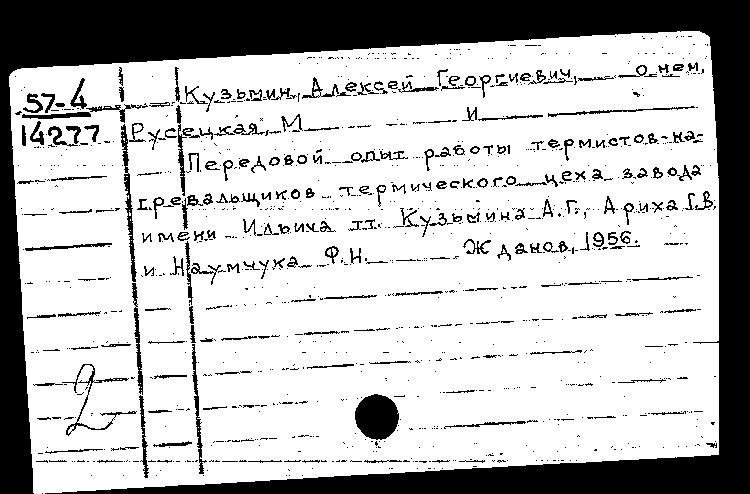 57-4 Кузьмин, Алексей Георгиевич, о нем.
14277 Русецкая, М. И
Передовой опыт работы термистов-на-
гревальщиков термического цеха завода
имени Ильича тт. Кузьмина А.Г., Ариха Г.В.
и Наумчука Ф.Н. Жданов, 1956.
2